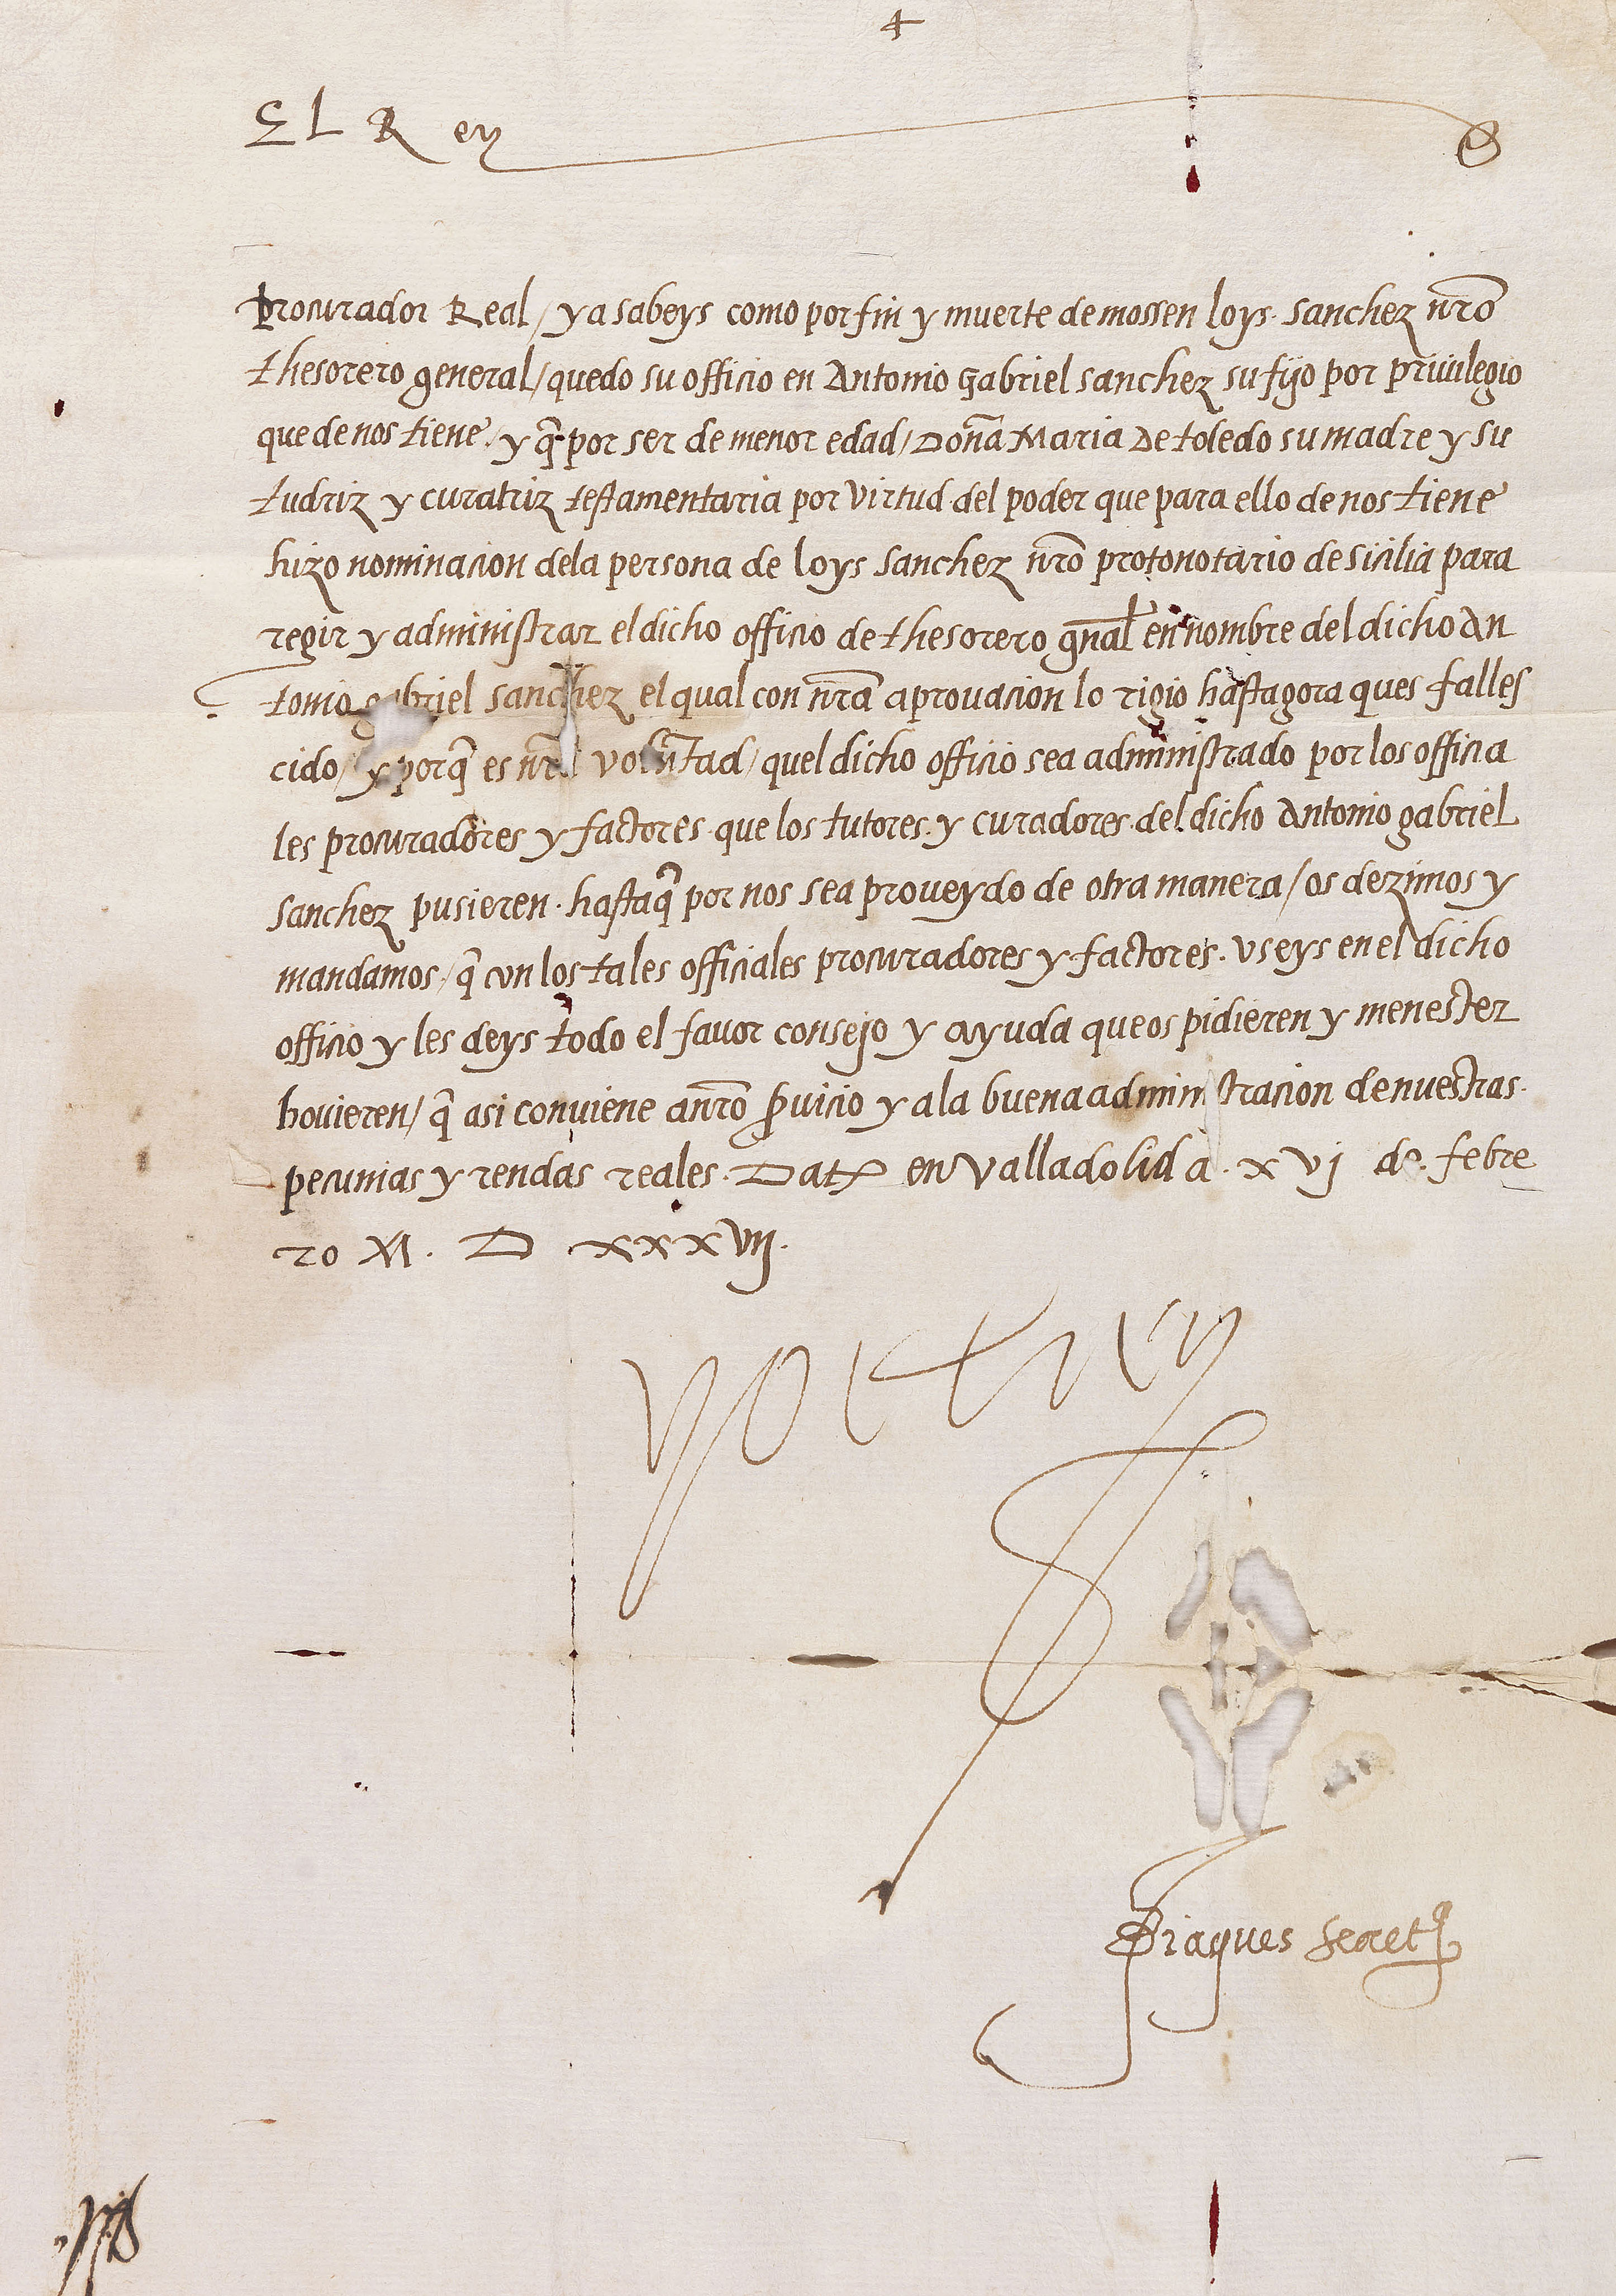 El Rey
Procurador Real / ya sabeys como por fin y muerte de mossen loys sanchez nr̃o
thesorero general / quedo su officio en Antonio Gabriel sanchez su fijo por priuilegio
que de nos tiene / y q̃ por ser de menor edad / Doña Maria de toledo su madre y su
tudriz y curatriz testamentaria por virtud del poder que para ello de nos tiene
hizo nominacion dela persona de loys sanchez nr̃o protonotario de sicilia para
regir y administrar el dicho officio de thesorero gñal en nombre del dicho An
tonio gabriel sanchez el qual con nr̃a aprouacion lo rigio hastagora ques falles
cido / y porq̃ es nr̃a volũtad / quel dicho officio sea administrado por los officia
les procuradores y factores que los tutores y curadores del dicho Antonio gabriel
sanchez pusieren. hastaq̃ por nos sea proueydo de otra manera / os dezimos y
mandamos / q̃ con los tales officiales procuradores y factores. vseys en el dicho
officio y les deys todo el fauor consejo y ayuda que os pidieren y menester
houieren / q̃ asi conuiene a nr̃o s̃uicio y ala buena administracion de nuestras
pecunias y rendas reales. Dat en Valladolid a. xvj de. febre
ro M. D xxxvij.
yo el rey